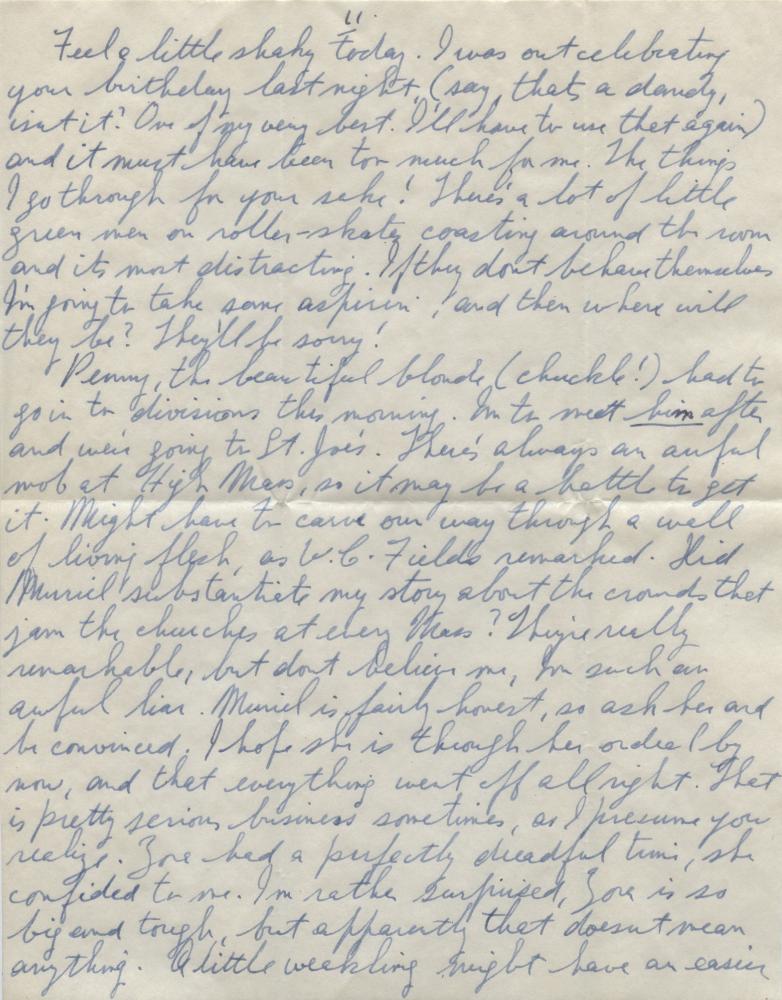 11
Feel a little shaky today. I was out celebrating
your birthday last night, (say, thats a dandy,
isnt it? One of my very best. I'll have to use that again)
and it must have been too much for me. The things
I go through for your sake! There's a lot of little
green men on roller-skates coasting around the room
and its most distracting. If they dont behave themselves
I'm going to take some aspirin, and then where will
they be? They'll be sorry!
Penny, the beautiful blonde (chuckle!) had to
go in to divisions this morning. Im to meet him after
and we're going to St. Joe's. There's always an awful
mob at High Mass, so it may be a battle to get
it. Might have to carve our way through a wall
of living flesh, as W.C. Fields remarked. Did
Muriel substantiate my story about the crowds that
jam the churches at every Mass? They're really
remarkable, but dont believe me, Im such an
awful liar. Muriel is fairly honest, so ask her and
be convinced. I hope she is through her ordeal by
now, and that everything went off all right. That
is pretty serious business sometimes, as I presume you
realize. Zora had a perfectly dreadful time, she
confided to me. I'm rather surprised, Zora is so
big and tough, but apparently that doesnt mean
anything. A little weakling might have an easier